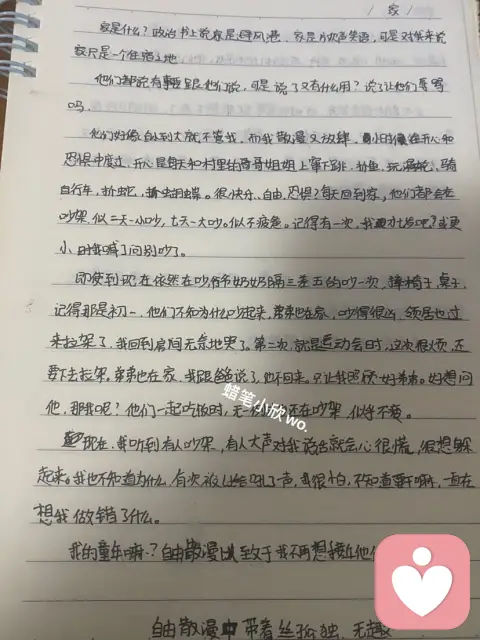 家
家是什么?政治书上说家是避风港、家是欢声笑语,可是对我来说
家只是一个住宿之地
他们都说有事要跟他们说,可是说了又有什么用?说了让他们骂
吗.
他们好像自小到大就不管我,而我散漫又放肆.小时候在开心和
恐惧中度过,开心是每天和村里的哥哥姐姐上窜下跳,钓鱼,玩,骑
自行车,抓蛇,抓蝴蝶。很快乐、自由,恐惧?每天回到家,他们都会在
吵架,似三天一小吵,七天一大吵。似不疲惫。记得有一次,我七岁吧?或更
小时我喊了问别吵了。
即使到现在依然在吵爷爷奶奶隔三差五的吵一次,摔椅子桌子,
记得那是初一,他们不知为什么吵起来,弟弟也在家,吵得很凶,领居也过
来拉架了,我回到房间无奈地哭了。第二次,就是运动会时,这次很烦,还
要下去拉架。弟弟也在家,我跟爸爸说了,他不回来。只让我照顾好弟弟。好想问
他,那我呢?他们一起吃饭时,无一例还在吵架,似乎不疲。
现在,我听到有人吵架,有人大声对我说话就会心很慌,很想躲
起来。我也不知道为什么,有次被吼了一声,我很怕,不知道要干嘛,一直在
想我做错了什么。
我的童年嘛.?自由散漫以至于我不再想接近他
自由散漫中带着丝孤独,无趣
蜡笔小欣wo.